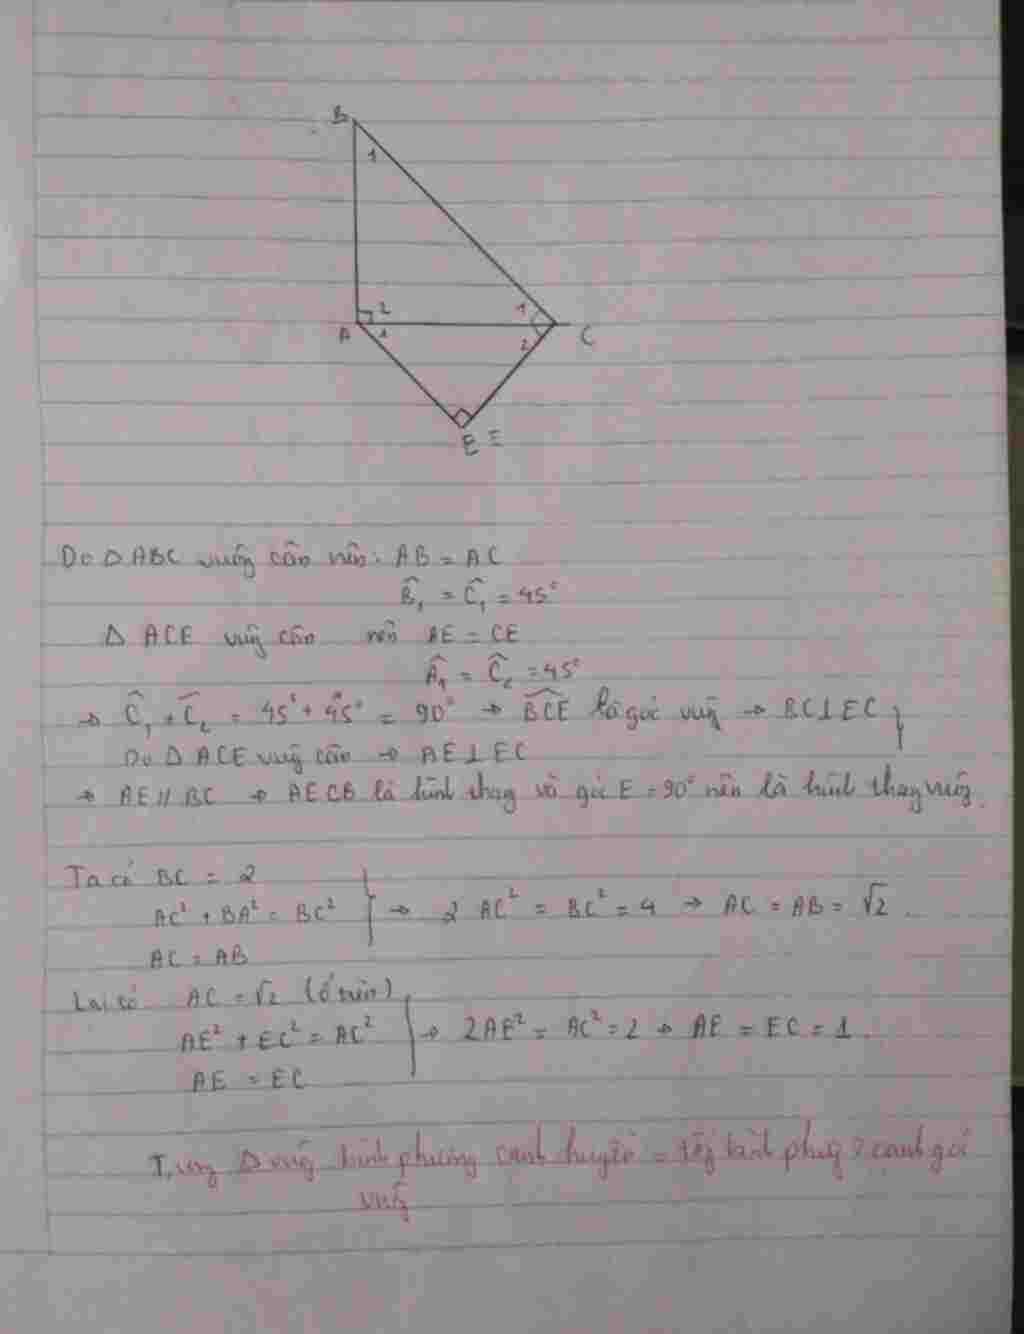 B
1
2
1
A
1
2
C
E E
Do Δ ABC vuông cân nên: AB = AC
B̂₁ = Ĉ₁ = 45°
Δ ACE vuông cân nên AE = CE
Â₁ = Ĉ₂ = 45°
→ Ĉ₁ + Ĉ₂ = 45° + 45° = 90° → BCE là góc vuông → BC ⊥ EC }
Do Δ ACE vuông cân → AE ⊥ EC
→ AE // BC → AECB là hình thang và góc E = 90° nên là hình thang vuông.
Ta có BC = 2
AC² + BA² = BC² } → 2 AC² = BC² = 4 → AC = AB = √2.
AC = AB
Lại có AC = √2 (ở trên)
AE² + EC² = AC² } → 2AE² = AC² = 2 → AE = EC = 1.
AE = EC
Trong Δ vuông bình phương cạnh huyền = tổng bình phương 2 cạnh góc
vuông